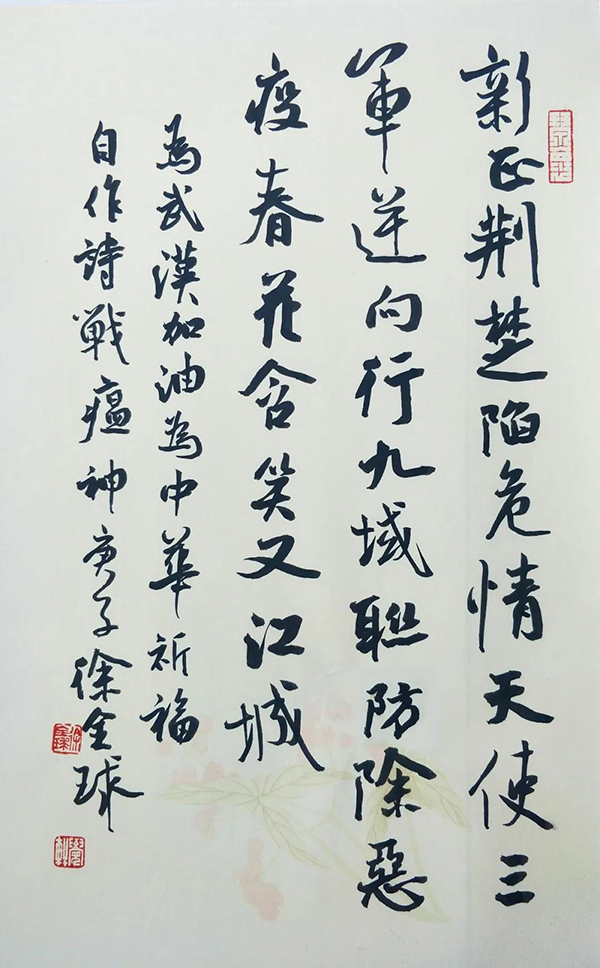 新正荆楚陷危情天使三
軍逆向行九域聯防除惡
疫春花含笑又江城
為武漢加油為中華祈福
自作詩戰瘟神庚子徐全球